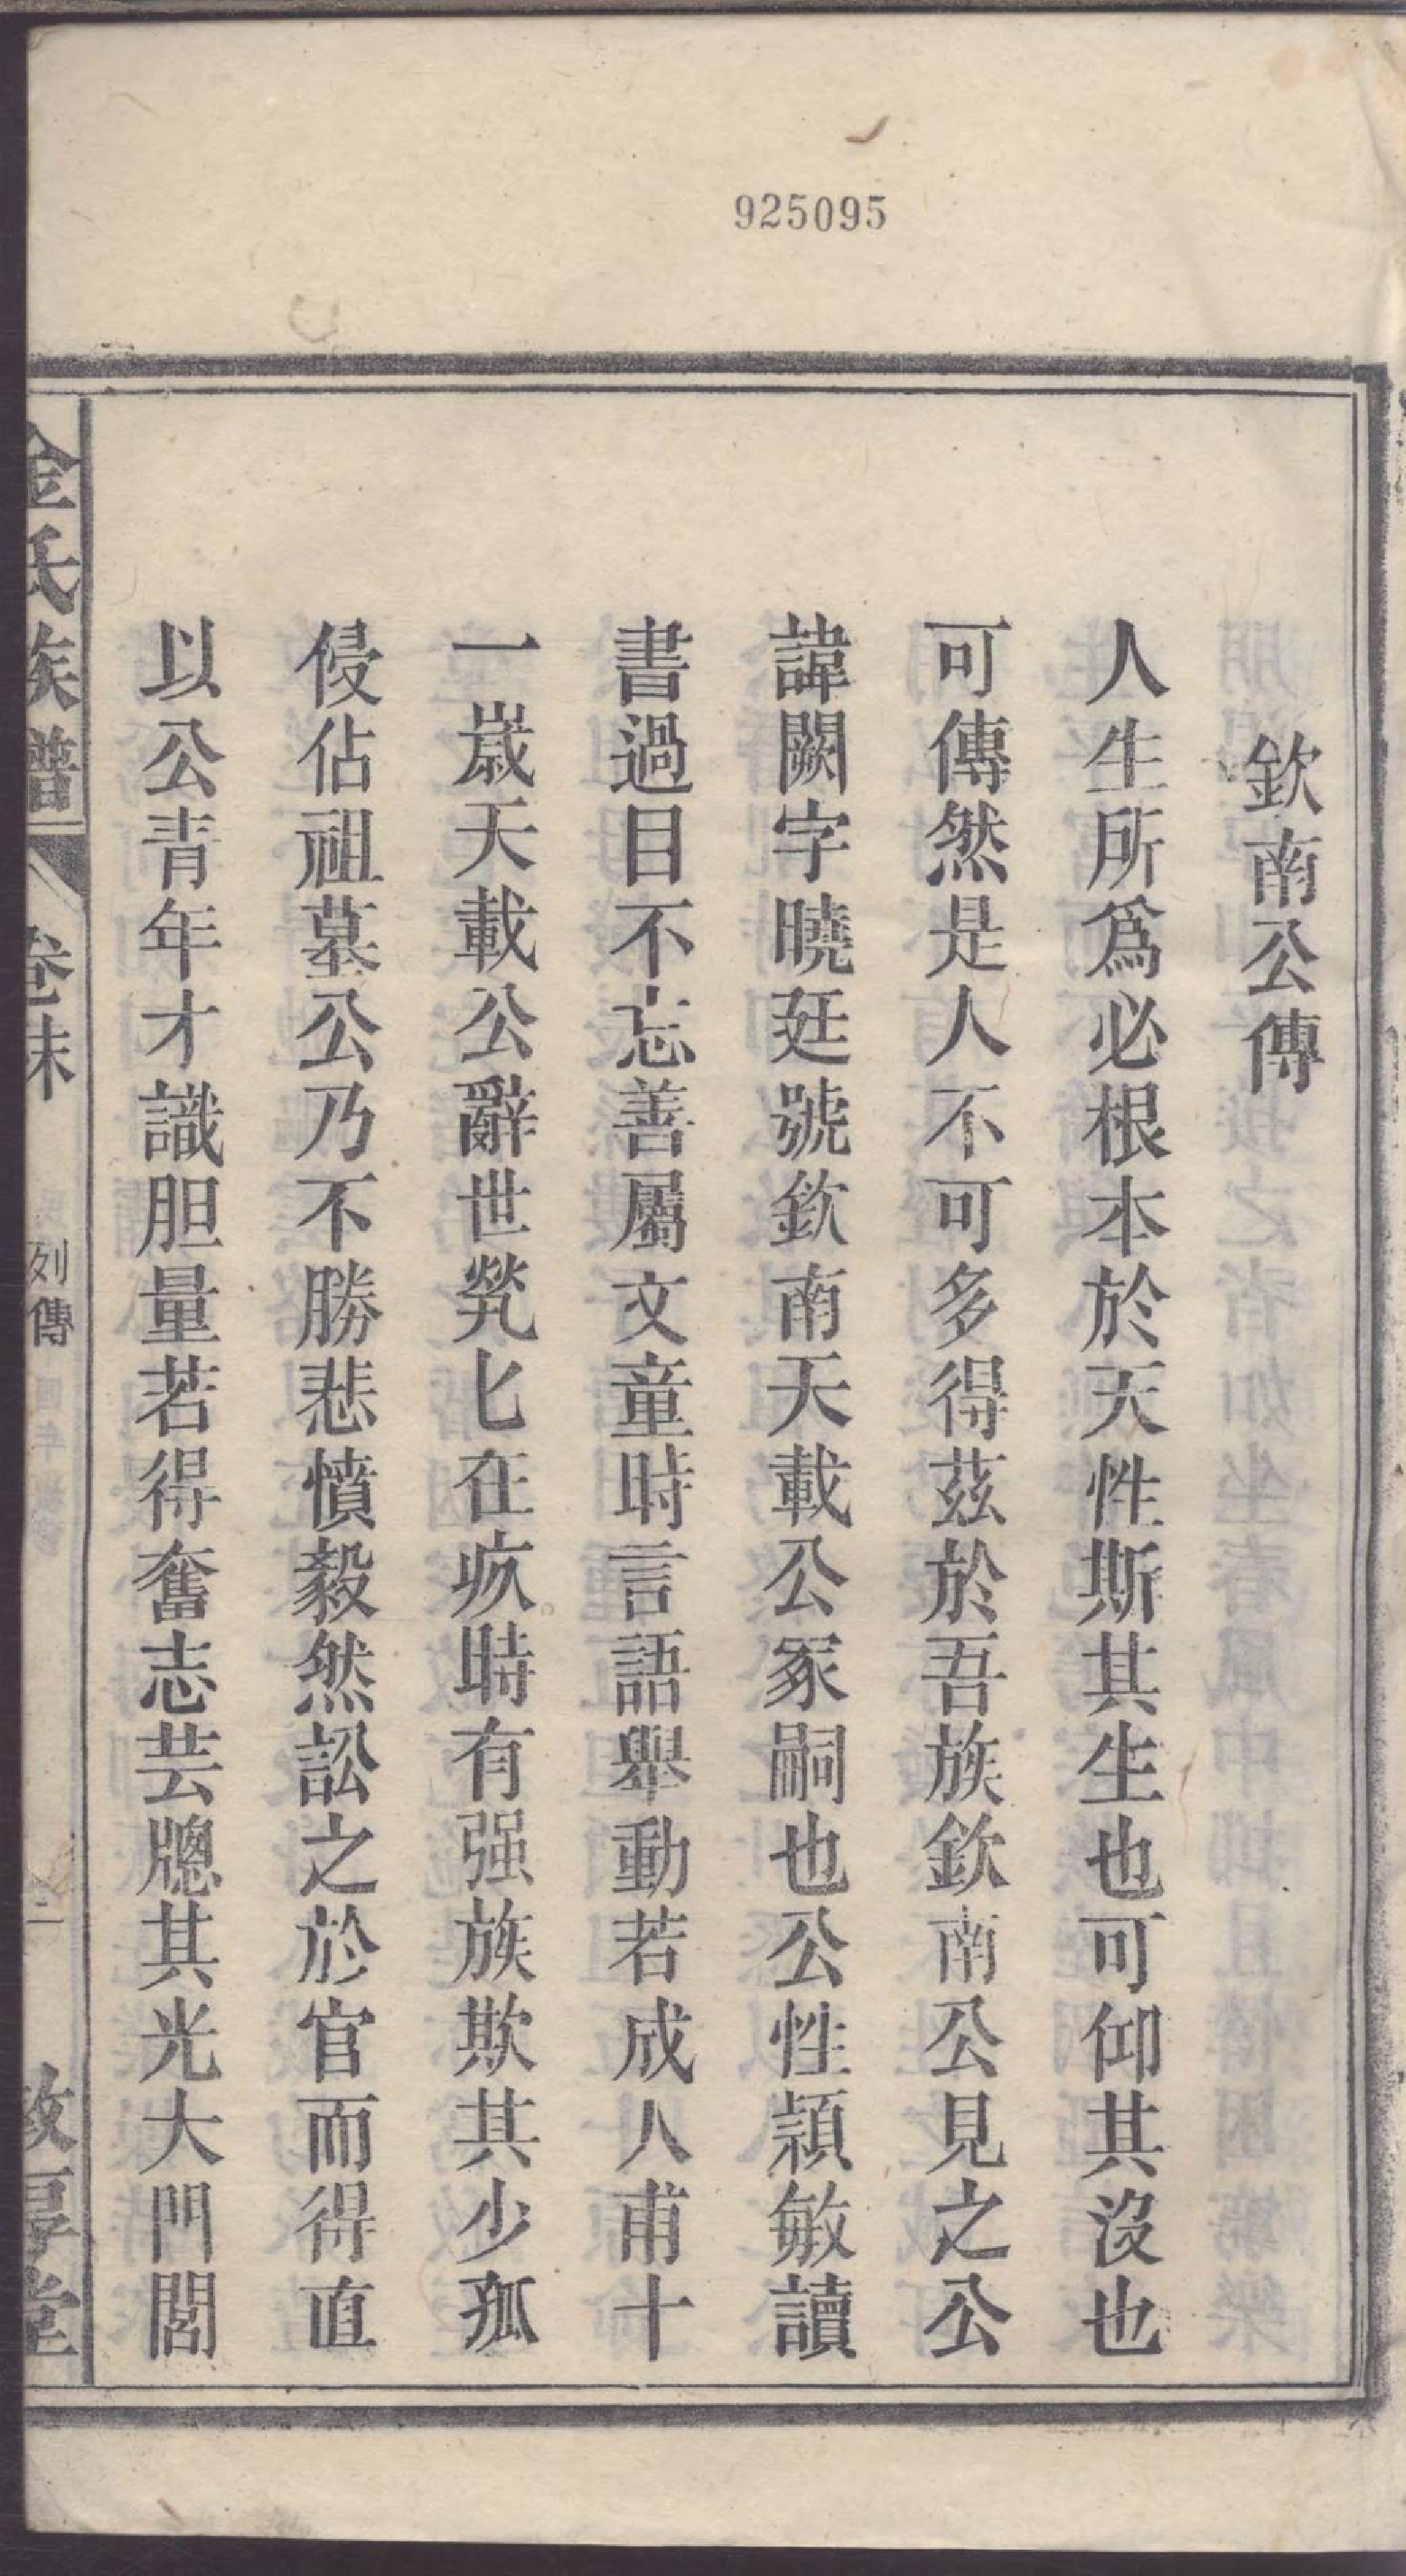 925095
欽南公傳
人生所爲必根本於天性斯其生也可仰其沒也
可傳然是人不可多得茲於吾族欽南公見之公
諱闕字曉廷號欽南天載公冢嗣也公性穎敏讀
書過目不忘善屬文童時言語舉動若成人甫十
一歲天載公辭世煢匕在疚時有强族欺其少孤
侵佔祖墓公乃不勝悲憤毅然訟之於官而得直
以公青年才識胆量若得奮志芸牕其光大門閭
金氏族譜 卷末 列傳 二 敦厚堂